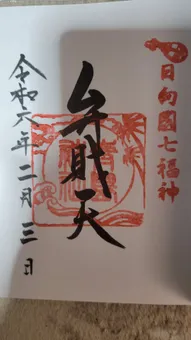 日向國七福神
弁財天
令和六年二月三日